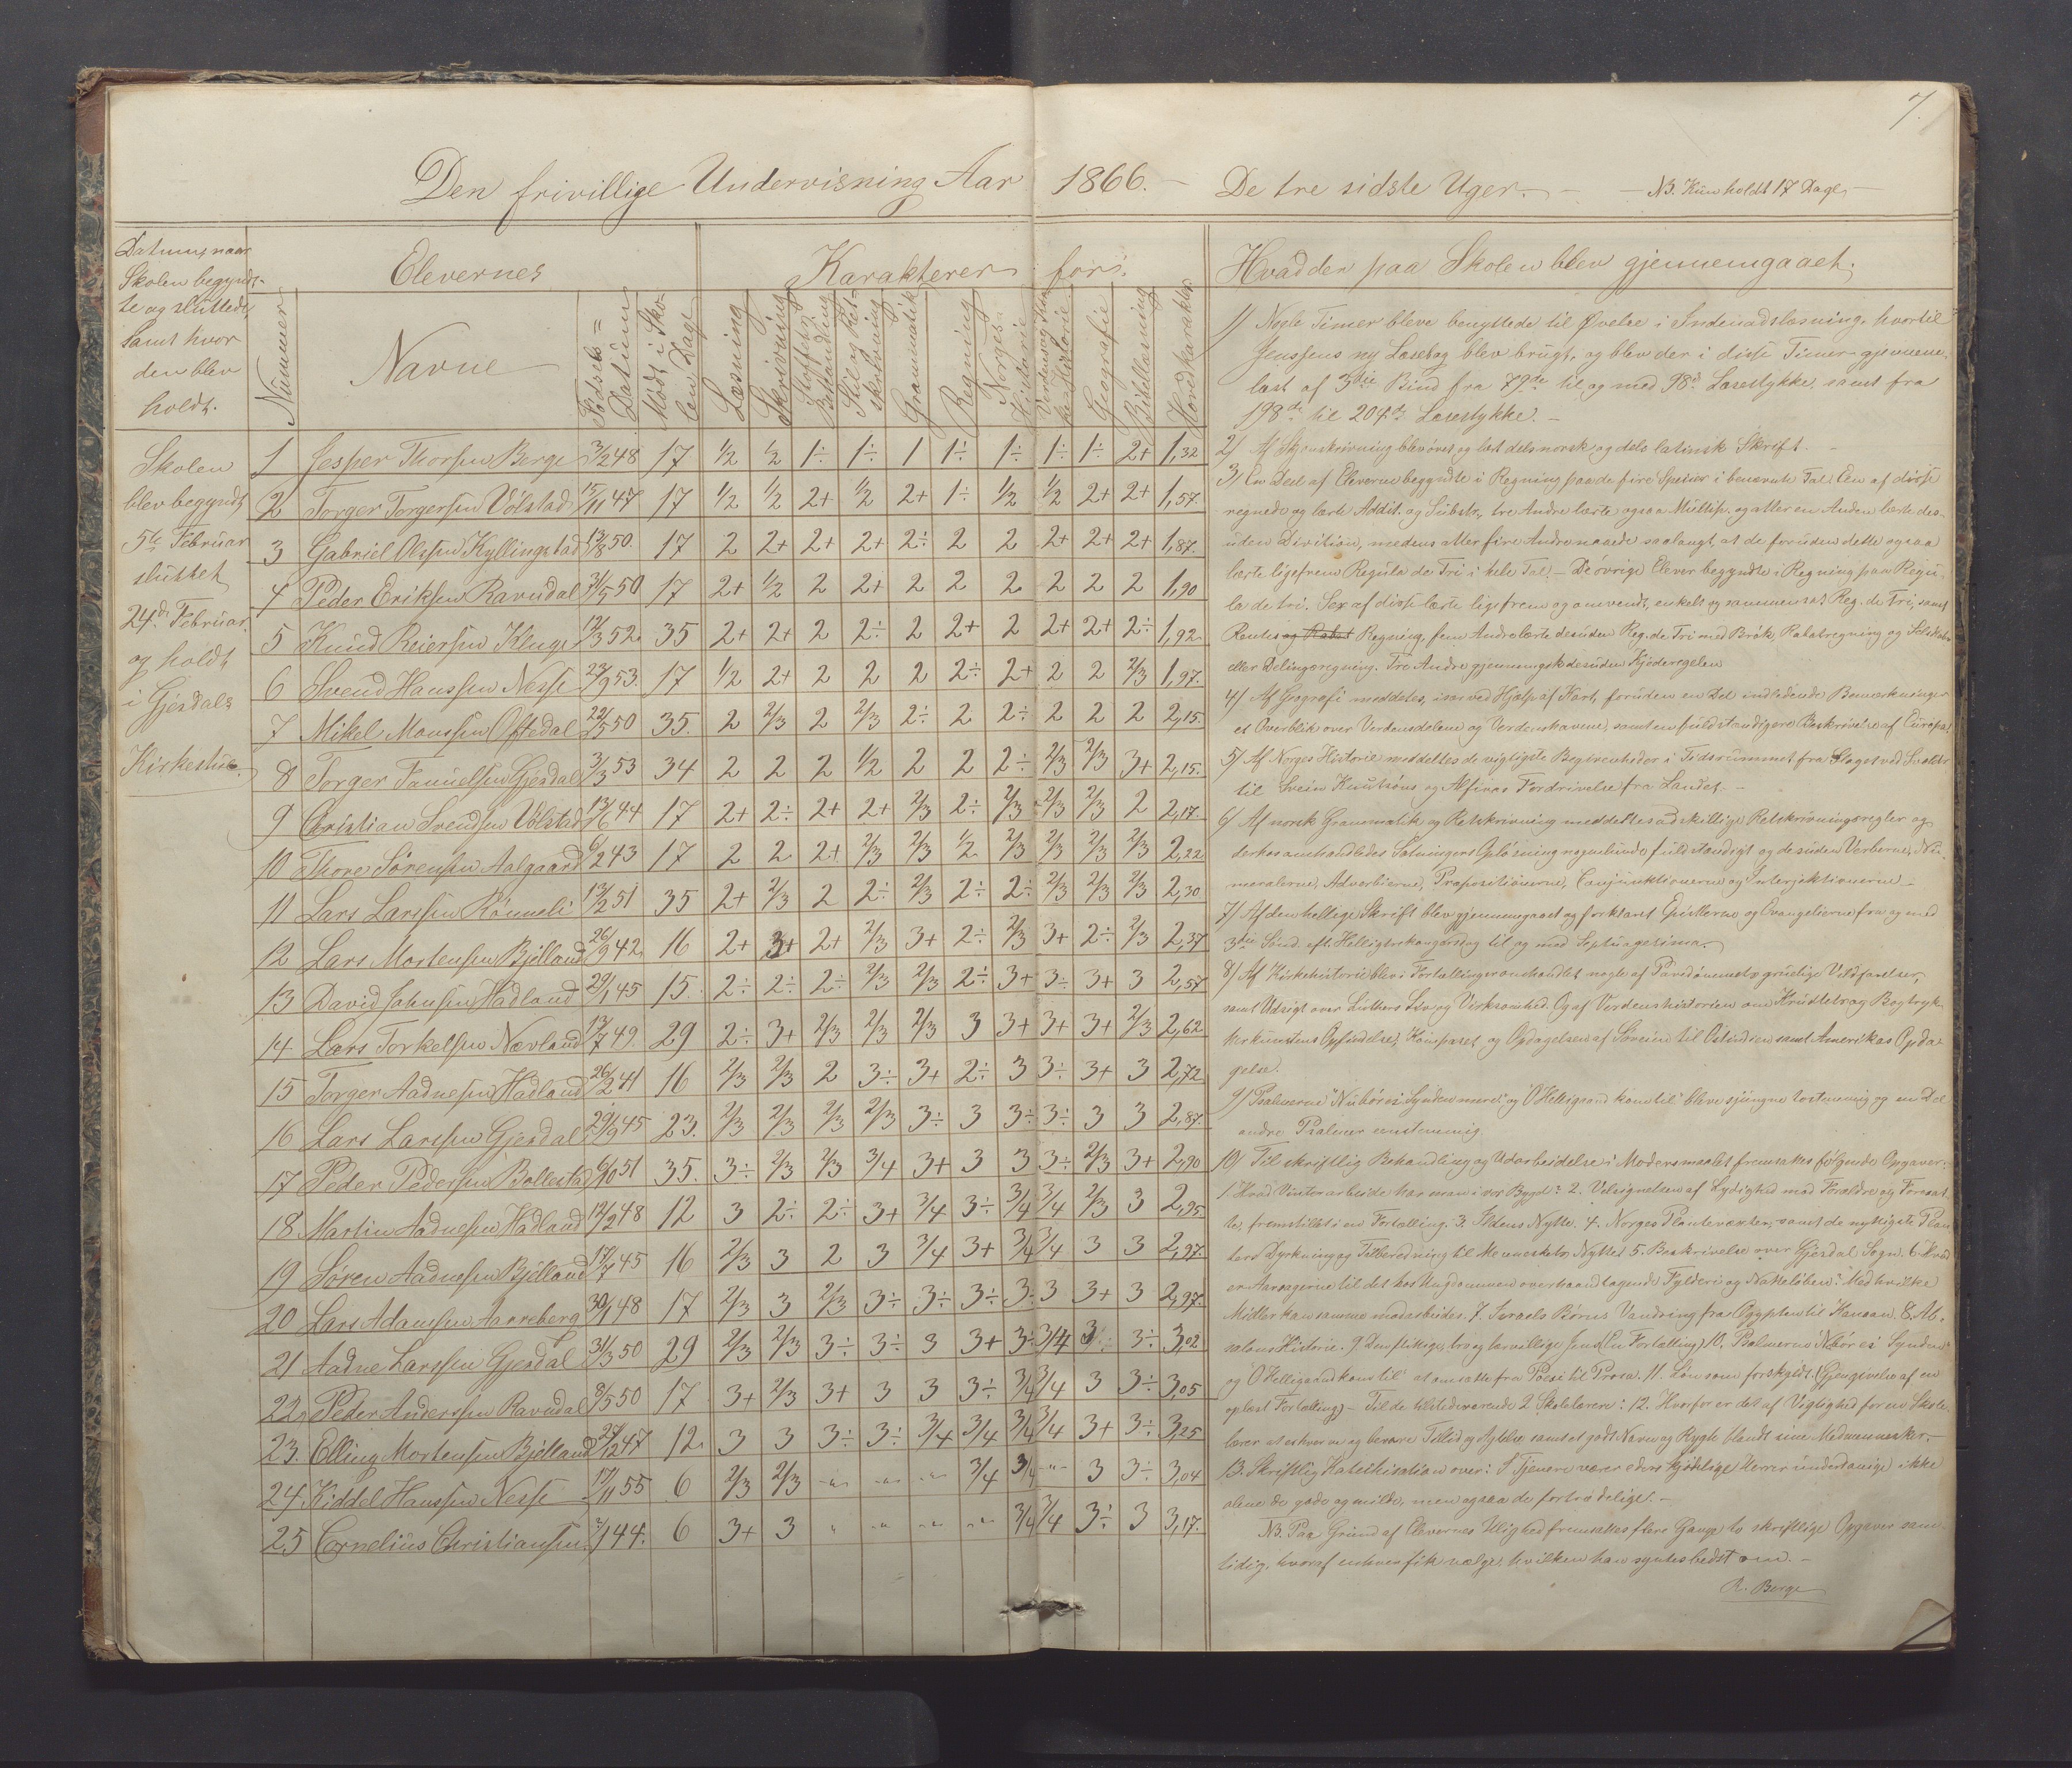 7.
Den frivillige Undervisning Aar 1866. — De tre sidste Uger. — — NB. Kun holdt 17 Dage. —
Datum, naar
Skolen begynd-
te og sluttede,
samt hvor
den blev
holdt.
Elevernes
Karakterer for:
Hvad der paa Skolen blev gjennemgaaet.
Nummer
Navne
Fødsels=
Datum
Mødt i Sko-
len Dage
Læsning
Skrivning
Stoffets
Behandling
Stil og Ret-
skrivning
Grammatik
Regning
Norges
Historie
Verdens og Kir-
ke Historie
Geografie
Bibellæsning
Hovedkarakter
Skolen
blev begyndt
5te Februar
sluttet
24de Februar
og holdt
i Gjesdals
Kirkestue.
1 Jesper Thorsen Berge 3/2 48 17 1/2 1/2 1÷ 1÷ 1 1÷ 1÷ 1÷ 1÷ 2+ 1,32
2 Torger Torgersen Vølstad 15/11 47 17 1/2 1/2 2+ 1/2 2+ 1÷ 1/2 1/2 2+ 2+ 1,57
3 Gabriel Olsen Kyllingstad 13/8 50. 17 2 2+ 2+ 2+ 2÷ 2 2 2+ 2+ 2+ 1,87.
4 Peder Eriksen Ravndal 31/5 50 17 2+ 1/2 2 2+ 2 2 2 2 2 2 1,90
5 Knud Reiersen Kluge 12/3 52. 35 2+ 2+ 2 2÷ 2 2+ 2 2+ 2+ 2÷ 1,92.
6 Svend Hanssen Nesse 23/9 53. 17 1/2 2+ 2 2 2 2÷ 2+ 2 2 2/3 1,97.
7 Mikel Monssen Oftedal 22/5 50 35. 2 2/3 2 2/3 2÷ 2 2÷ 2 2 2 2,15.
8 Torger Samuelsen Gjesdal 3/3 53 34 2 2 2 1/2 2 2 2÷ 2/3 2/3 3+ 2,15.
9 Christian Svendsen Vølstad 13/6 44 17 2+ 2÷ 2+ 2+ 2/3 2÷ 2/3 2/3 2/3 2 2,17.
10 Thore Sørensen Aalgaard 6/2 43 17 2 2 2+ 2/3 2/3 1/2 2/3 2/3 2/3 2/3 2,22
11 Lars Larssen Rønneli 13/2 51 35 2+ 2/3 2 2÷ 2/3 2÷ 2÷ 2/3 2/3 2/3 2,30
12 Lars Mortensen Bjelland 26/9 42 16 2+ 3+ 2+ 2/3 3+ 2÷ 2/3 3+ 2÷ 2/3 2,37
13 David Johnsen Hadland 29/1 45 15. 2÷ 2÷ 2÷ 2/3 2/3 2÷ 3+ 3÷ 3+ 3 2,57
14 Lars Torkelsen Nævland 13/7 49. 29 2÷ 3+ 2/3 2/3 2/3 3 3+ 3+ 3+ 2/3 2,62
15 Torger Aadnesen Hadland 26/2 41 16 2/3 2/3 2 3÷ 3+ 2÷ 3 3÷ 3+ 3 2,72
16 Lars Larssen Gjesdal 29/9 45 23. 2/3 2/3 2/3 2/3 3÷ 3 3÷ 3÷ 3 3 2,87.
17 Peder Pedersen Bollestad 6/10 51 35. 3÷ 2/3 2/3 3/4 3+ 3 3 3÷ 2/3 3+ 2,90
18 Martin Aadnesen Hadland 12/2 48 12 3 2÷ 2÷ 3+ 3/4 3÷ 3/4 3/4 2/3 3 2,95
19 Søren Aadnesen Bjelland 17/7 45 16 2/3 3 2 3 3/4 3+ 3/4 3/4 3 3 2,97.
20 Lars Adamsen Aarreberg 30/1 48 17 2/3 3 2/3 3÷ 3÷ 3÷ 3÷ 3 3+ 3 2,97.
21 Aadne Larssen Gjesdal 31/3 50 29 2/3 2/3 3÷ 3÷ 3 3+ 3÷ 3/4 3 3÷ 3,02
22 Peder Anderssen Ravndal 8/5 50 17 3+ 2/3 3+ 3 3 3÷ 3/4 3/4 3 3÷ 3,05
23. Elling Mortensen Bjelland 27/12 47 12 3 3 3÷ 3÷ 3/4 3/4 3/4 3/4 3+ 3÷ 3,25
24. Kiddel Hanssen Nesse 17/11 55 6 2/3 2/3 -"- -"- -"- 3/4 3/4 -"- 3 3÷ 3,04
25 Cornelius Christiansen 2/1 44. 6 3+ 3 " -"- -"- -"- 3/4 3/4 3÷ 3 3,17.
1) Nogle Timer bleve benyttede til Øvelse i Indenadslæsning, hvortil
Jenssens ny Læsebog blev brugt, og blev der i disse Timer gjennem-
læst af 3die Bind fra 79de til og med 98de Læsestykke, samt fra
198de til 204de Læsestykke. —
2) Af Skjønskrivning blev øvet og læst dels norsk og dels latinsk Skrift. —
3) En Deel af Eleverne begyndte i Regning paa de fire Spesier i benævnte Tal. Een af disse
regnede og lærte Addit. og Subtr., tre Andre lærte ogsaa Multip. og atter en Anden lærte des-
uden Division, medens atter fire Andre naaede saalangt, at de foruden dette ogsaa
lærte ligefrem Regula de Tri i hele Tal. — De øvrige Elever begyndte i Regning paa Regu-
la de tri. Sex af disse lærte ligefrem og omvendt, enkelt og sammensat Reg. de Tri, samt
Rentes og Rabat Regning, fem Andre lærte desuden Reg. de Tri med Brøk, Rabatregning og Selskabs
eller Delingsregning. Tre Andre gjennemgik desuden Kjæderegelen
4) Af Geografi meddeltes, især ved Hjælp af Kart, foruden en Del indledende Bemærkninger
et Overblik over Verdensdelene og Verdenshavene, samt en fuldstændigere Beskrivelse af Europa.
5) Af Norges Historie meddeltes de vigtigste Begivenheder i Tidsrummet fra Slaget ved Svolder
til Svein Knutsøns og Alfivas Fordrivelse fra Landet. —
6) Af norsk Grammatik og Retskrivning meddeltes adskillige Retskrivningsregler og
derhos omhandledes Sætningers Opløsning nogenlunde fuldstændigt og desuden Verberne, Nu-
meralerne, Adverbierne, Præpositionerne, Conjunktionerne og Interjektionerne —
7) Af den hellige Skrift blev gjennemgaaet og forklaret Epistlerne og Evangelierne fra og med
3die Sønd. eft. Helligtrekongersdag til og med Septuagesima. —
8) Af Kirkehistorie blev i Fortællinger omhandlet nogle af Pavedømmets gruelige Vildfarelser,
samt Udsigt over Luthers Liv og Virksomhed. Og af Verdenshistorien om Krudtets og Bogtryk-
kerkunstens Opfindelse, Kompasset og Opdagelsen af Søveien til Ostindien samt Amerikas Opda-
gelse.
9) Psalmerne "Nu bør ei Synden mere" og "O Helligaand kom til" bleve sjungne tostemmig og en Del
andre Psalmer enstemmig.
10) Til skriftlig Behandling og Udarbeidelse i Modersmaalet fremsattes følgende Opgaver:
1. Hvad Vinterarbeide har man i vor Bygd? 2. Velsignelsen af Lydighed mod Forældre og Foresat-
te, fremstillet i en Fortælling. 3. Ildens Nytte. 4. Norges Plantevæxter, samt de nyttigste Plan-
ters Dyrkning og Tilberedning til Menneskets Nytte. 5. Beskrivelse over Gjesdal Sogn. 6. Hvad
er Aarsagerne til det hos Ungdommen overhaandtagende Fylderi og Natteløben? Med hvilke
Midler kan samme modarbeides. 7. Israels Børns Vandring fra Ægypten til Kanaan. 8. Ab-
salons Historie. 9. Den flittige, tro og tarvelige Svend (En Fortælling) 10. Psalmerne "Nu bør ei Synden"
og "O Helligaand kom til" at omsætte fra Poesi til Prosa. 11. Løn som forskyldt. (Gjengivelse af en
oplæst Fortælling) — Til de tilstedeværende 2 Skolelærere: 12. Hvorfor er det af Vigtighed for en Skole-
lærer at erhverve og bevare Tillid og Agtelse samt et godt Navn og Rygte blandt sine Medmennesker. —
13. Skriftlig Katekisation over: I Tjenere værer eders kjødelige Herrer underdanige ikke
alene de gode og milde, men ogsaa de fortrædelige. —
NB. Paa Grund af Elevernes Ulighed fremsattes flere Gange to skriftlige Opgaver sam-
tidig, hvoraf enhver fik vælge, hvilken han syntes bedst om. —
R. Berge